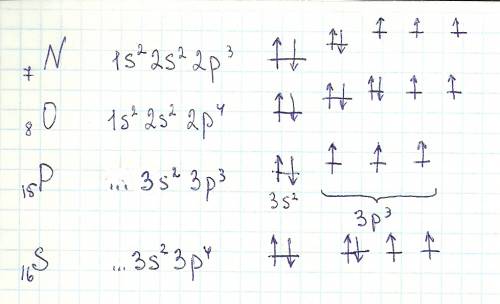 ₇N 1s² 2s² 2p³ ↑↓ ↑↓ ↑ ↑ ↑
₈O 1s² 2s² 2p⁴ ↑↓ ↑↓ ↑↓ ↑ ↑
₁₅P ... 3s² 3p³ ↑↓ ↑ ↑ ↑
3s² 3p³
₁₆S ... 3s² 3p⁴ ↑↓ ↑↓ ↑ ↑